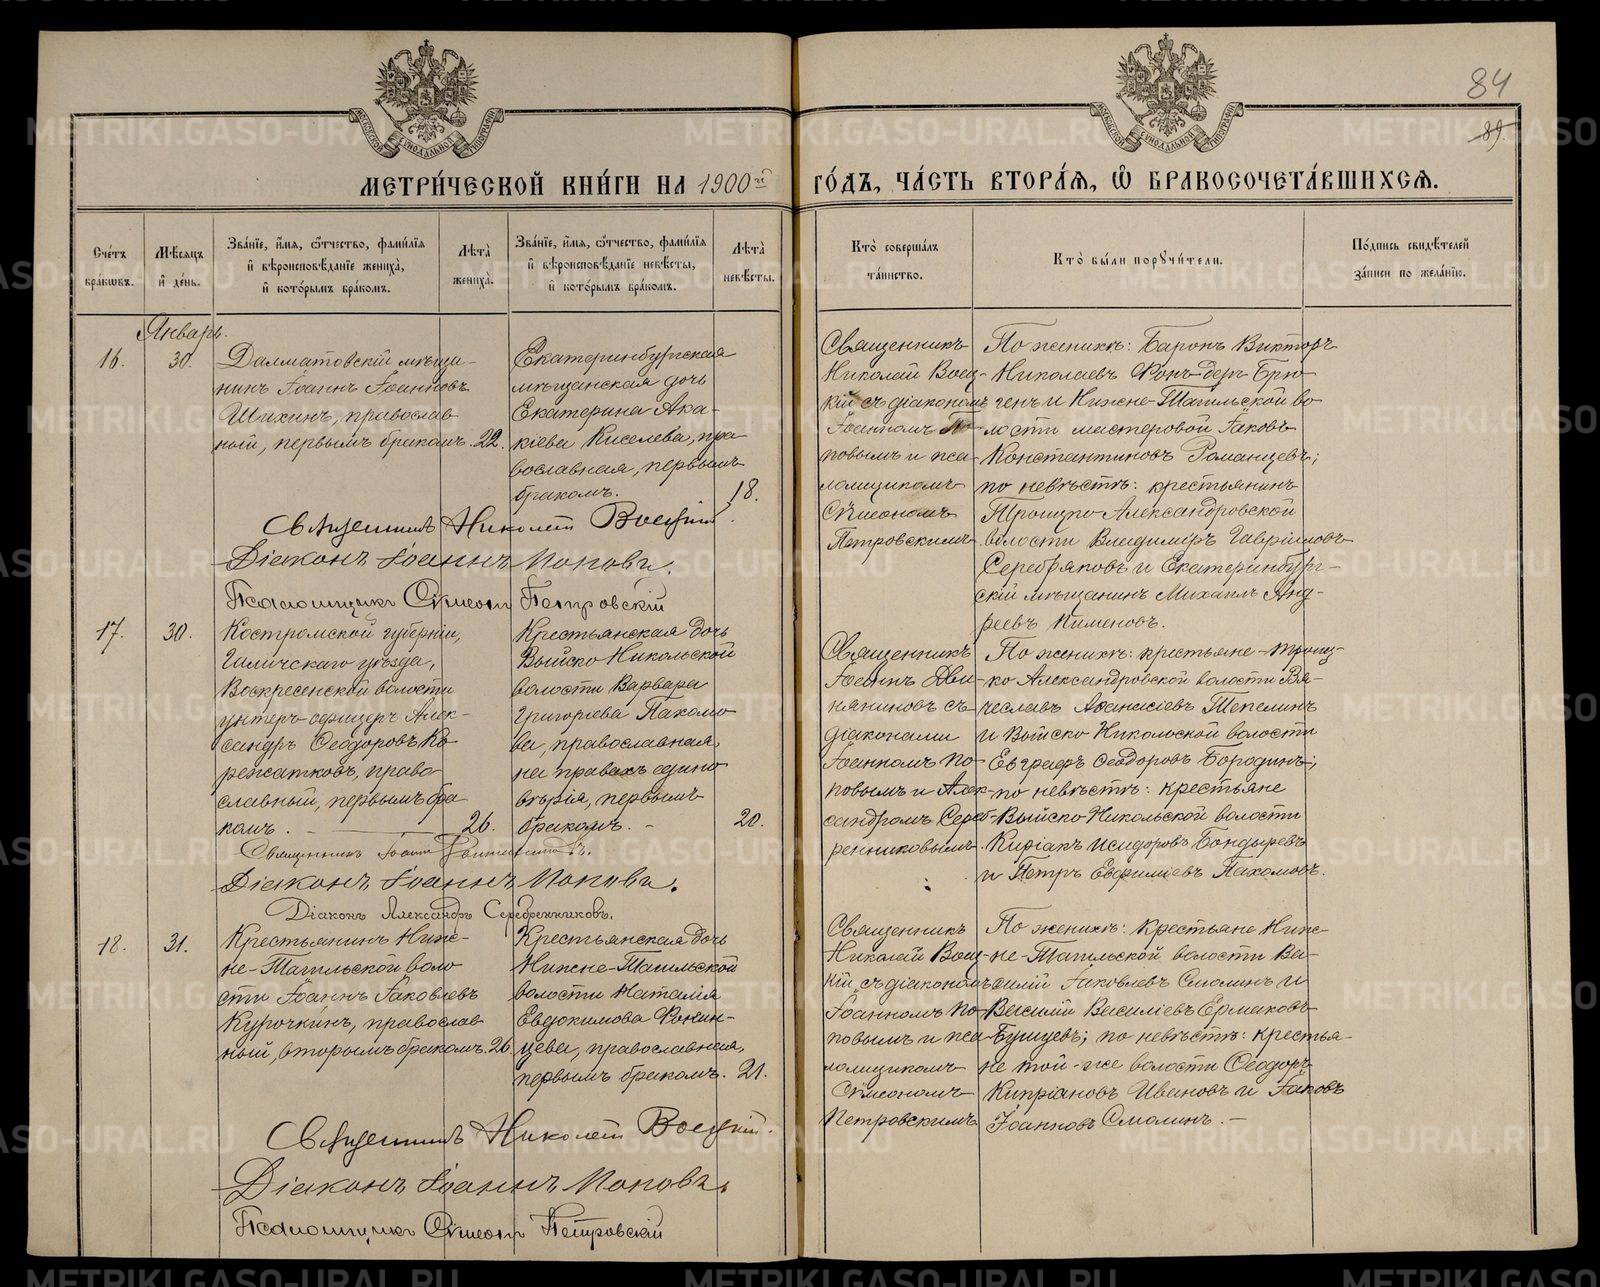 84
89.
МЕТРИ́ЧЕСКОЙ КНИ́ГИ НА 1900й ГО́ДЪ, ЧА́СТЬ ВТОРА́Я, Ѡ҆ БРАКОСОЧЕТА́ВШИХСЯ.
Сче́тъ бра́кѡвъ.
Мѣ́сяцъ и҆ де́нь.
Зва́нїе, и҆́мя, ѻ҆́тчество, фами́лїя и҆ вѣроисповѣ́данїе жениха̀, и҆ кото́рымъ бра́комъ.
Лѣта̀ жениха̀.
Зва́нїе, и҆́мя, ѻ҆́тчество, фами́лїя и҆ вѣроисповѣ́данїе невѣ́сты, и҆ кото́рымъ бра́комъ.
Лѣта̀ невѣ́сты.
Кто̀ соверша́лъ та́инство.
Кто̀ бы́ли порꙋчи́тели.
По́дпись свидѣ́телей за́писи по жела́нїю.
Январь.
16.
30.
Далматовскій мѣща-
нинъ Іоаннъ Іоанновъ
Шихинъ, православ-
ный, первымъ бракомъ.
22.
Екатеринбургская
мѣщанская дочь
Екатерина Ака-
кіева Киселева, пра
вославная, первымъ
бракомъ.
18.
Священникъ
Николай Воец-
кій съ діакономъ
Іоанномъ По-
повымъ и пса-
ломщикомъ
Сѵмеономъ
Петровскимъ
По женихѣ: Баронъ Викторъ
Николаевъ Фонъ-деръ-Брю
генъ и Нижне-Тагильской во
лости мастеровой Іаковъ
Константиновъ Романцевъ;
по невѣстѣ: крестьянинъ
Троицко-Александровской
волости Владиміръ Гавріиловъ
Серебряковъ и Екатеринбург-
скій мѣщанинъ Михаилъ Анд-
реевъ Пименовъ.
Священникъ Николай Воецкій.
Діаконъ Іоаннъ Поповъ.
Псаломщикъ Сѵмеонъ Петровскій
17.
30.
Костромской губерніи,
Галичскаго уѣзда,
Воскресенской волости
унтеръ-офицеръ Алек-
сандръ Ѳеодоровъ Ко-
режатковъ, право
славный, первымъ бра
комъ.
26.
Крестьянская дочь
Выйско-Никольской
волости Варвара
Григоріева Пахомо
ва, православная,
на правахъ едино
вѣрія, первымъ
бракомъ.
20.
Священникъ
Іоаннъ Дви-
няниновъ съ
діаконами
Іоанномъ По-
повымъ и Алек-
сандромъ Сереб-
ренниковымъ.
По женихѣ: крестьяне-Троиц-
ко Александровской волости Вя-
чеславъ Аѳанасіевъ Тепелинъ
и Выйско Никольской волости
Евграфъ Ѳеодоровъ Бородинъ;
по невѣстѣ: крестьяне
Выйско-Никольской волости
Киріакъ Исидоровъ Бондыревъ
и Петръ Евфиміевъ Пахомовъ.
Священникъ Іоаннъ Двиняниновъ.
Діаконъ Іоаннъ Поповъ.
Діаконъ Александръ Серебренниковъ.
18.
31.
Крестьянинъ Ниж-
не-Тагильской воло
сти Іоаннъ Іаковлевъ
Курочкинъ, православ
ный, вторымъ бракомъ.
26.
Крестьянская дочь
Нижне-Тагильской
волости Наталія
Евдокимова
православная,
первымъ бракомъ.
21.
Священникъ
Николай Воец-
кій, съ діакономъ
Іоанномъ По-
повымъ и пса-
ломщикомъ
Сѵмеономъ
Петровскимъ
По женихѣ: Крестьяне Ниж-
не-Тагильской волости Ва-
силій Іаковлевъ Смолинъ и
Василій Василіевъ Ермаковъ
Бушуевъ; по невѣстѣ: крестья-
не той-же волости Ѳеодоръ
Кипріановъ Ивановъ и Іаковъ
Іоанновъ Смолинъ.
Священникъ Николай Воецкій.
Діаконъ Іоаннъ Поповъ.
Псаломщикъ Сѵмеонъ Петровскій
METRIKI.GASO-URAL.RU